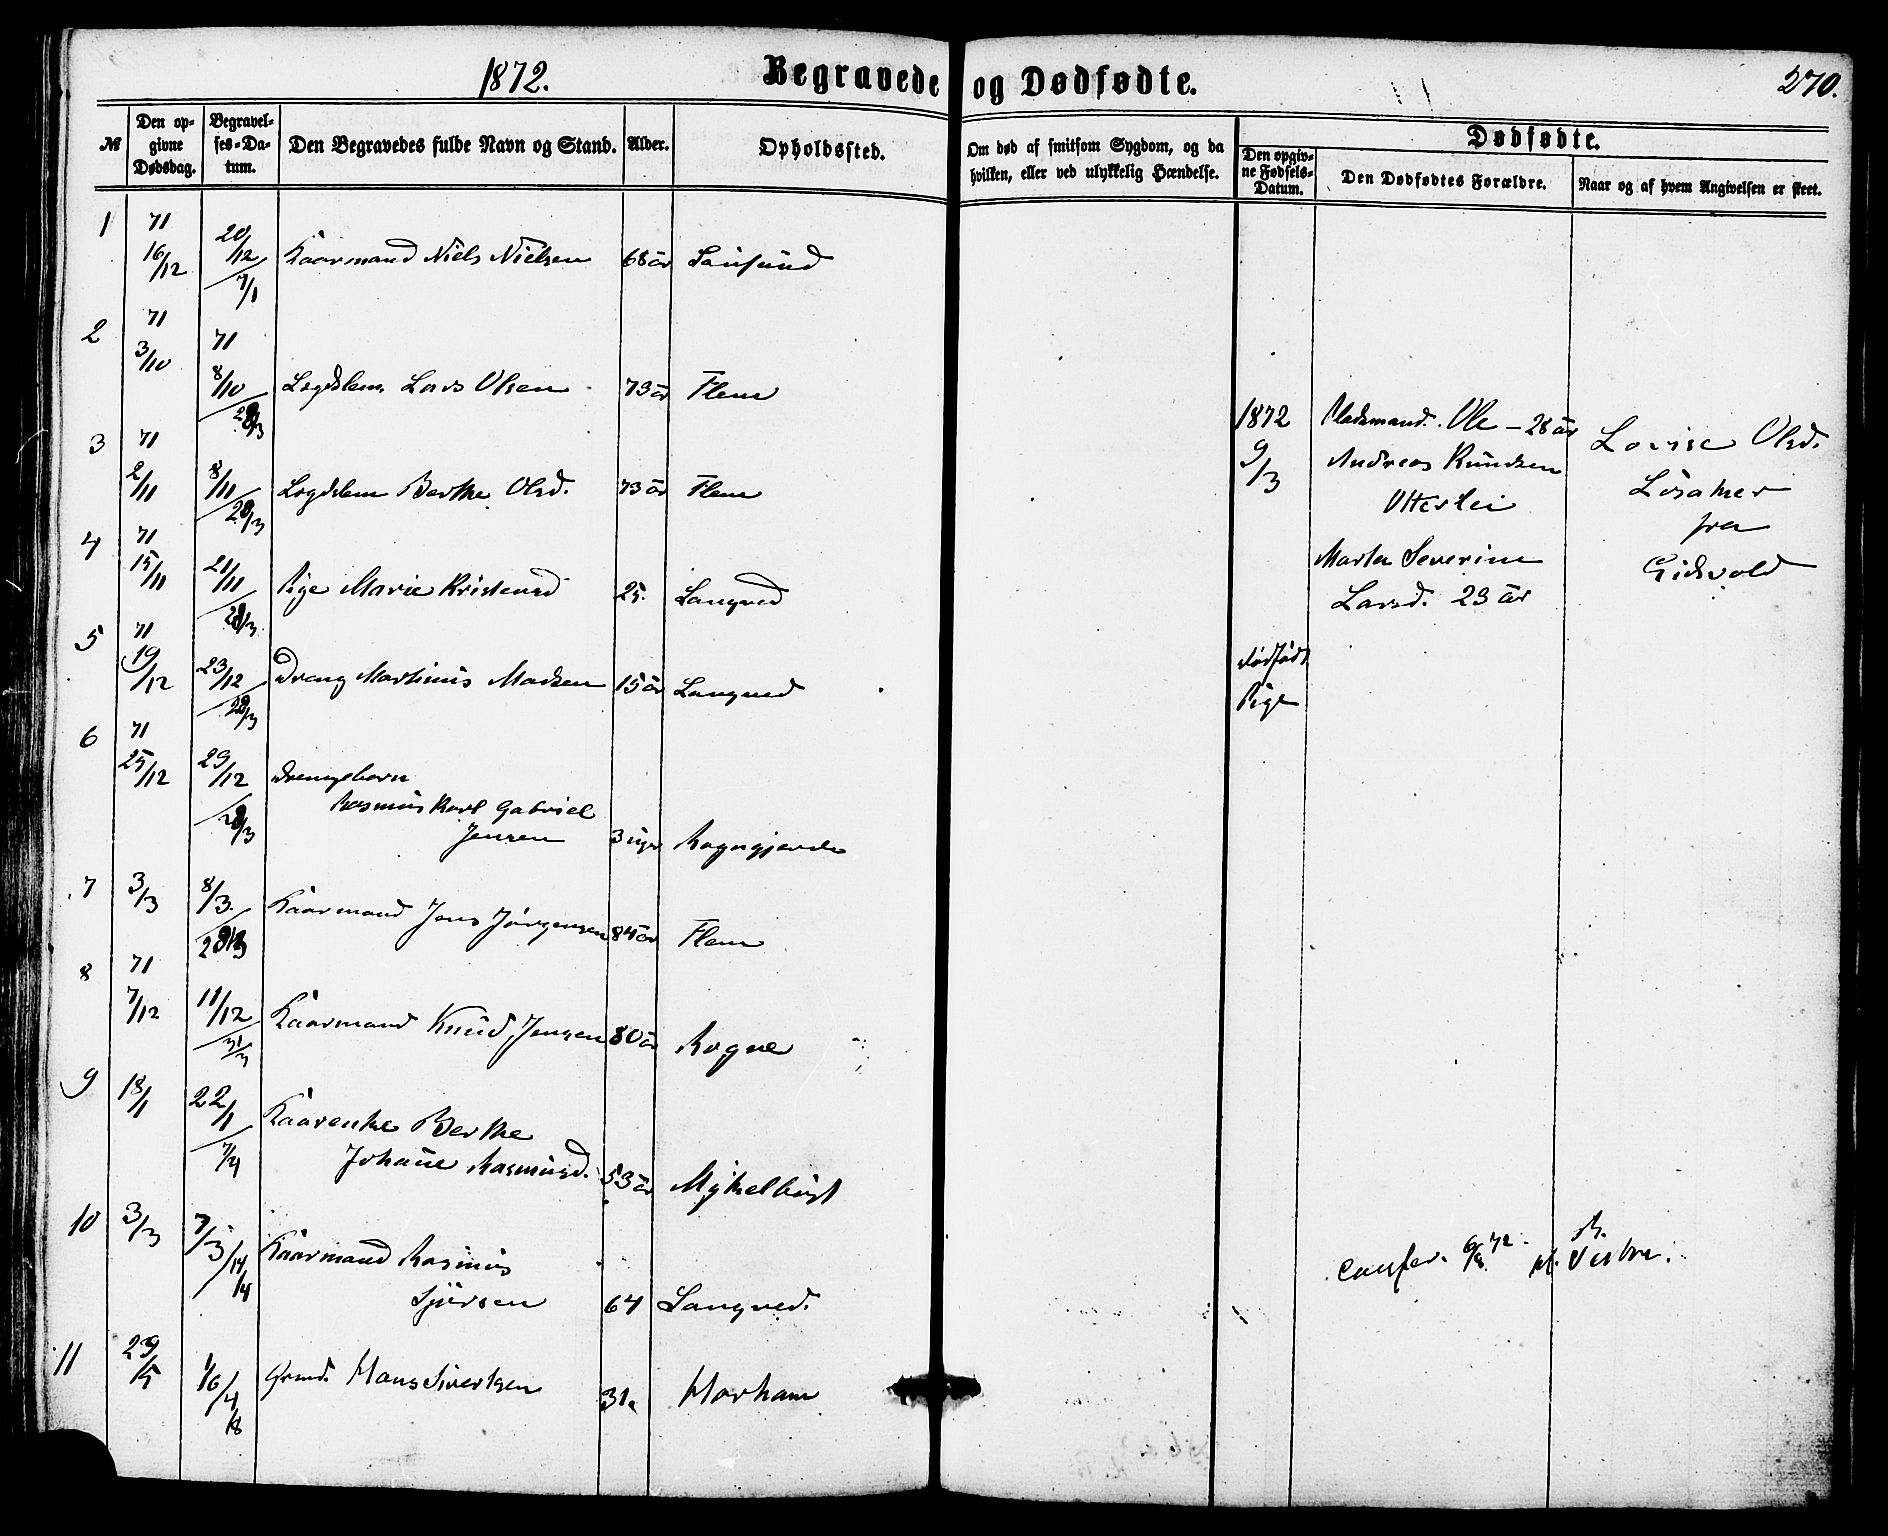 1872.
Begravede og Dødfødte.
270.
№
Den opgivne Dødsdag.
Begravelses-Datum.
Den Begravedes fulde Navn og Stand.
Alder.
Opholdssted.
Om død af smitsom Sygdom, og da hvilken, eller ved ulykkelig Hændelse.
Dødfødte.
Den opgivne Fødsels-Datum.
Den Dødfødtes Forældre.
Naar og af hvem Angivelsen er skeet.
1 71 16/12 20/12 7/1 Kaarmand Niels Nielsen 68 år
2 71 3/10 71 8/10 28/3 Lægdslem Lars Olsen 73 år Flem
3 71 2/11 8/11 28/3 Lægdslem Berthe Olsd. 73 år Flem
4 71 15/11 21/11 28/3 Pige Marie Kristensd 25. Langved
5 71 19/12 23/12 28/3 Dreng Martinus Madsen 15 år Langved
6 71 25/12 29/12 28/3 Drengebarn
Rasmus Karl Gabriel
Jensen 3 uger Rogngjerde
7 3/3 8/3 Kaarmand Jens Jørgensen 84 år Flem
8 71 7/12 11/12 31/3 Kaarmand Knud Jensen 80 år Rogne
9 18/1 22/1 7/4 Kaarenke Berthe
Johane Rasmusd. 53 år Myklebust
10 3/3 7/3 14/4 Kaarmand Rasmus
Sjursen 64 Langved.
11 Hans Sivertsen 31. Harham
1872 Pladsmand. Ole – 28 år
9/3 Andreas Knudsen
Otterlei
Marta Severine
Larsd. 23 år
Lovise Olsd.
Løsaker
fra
Gidsvold
dødfødt
Pige
Confer.